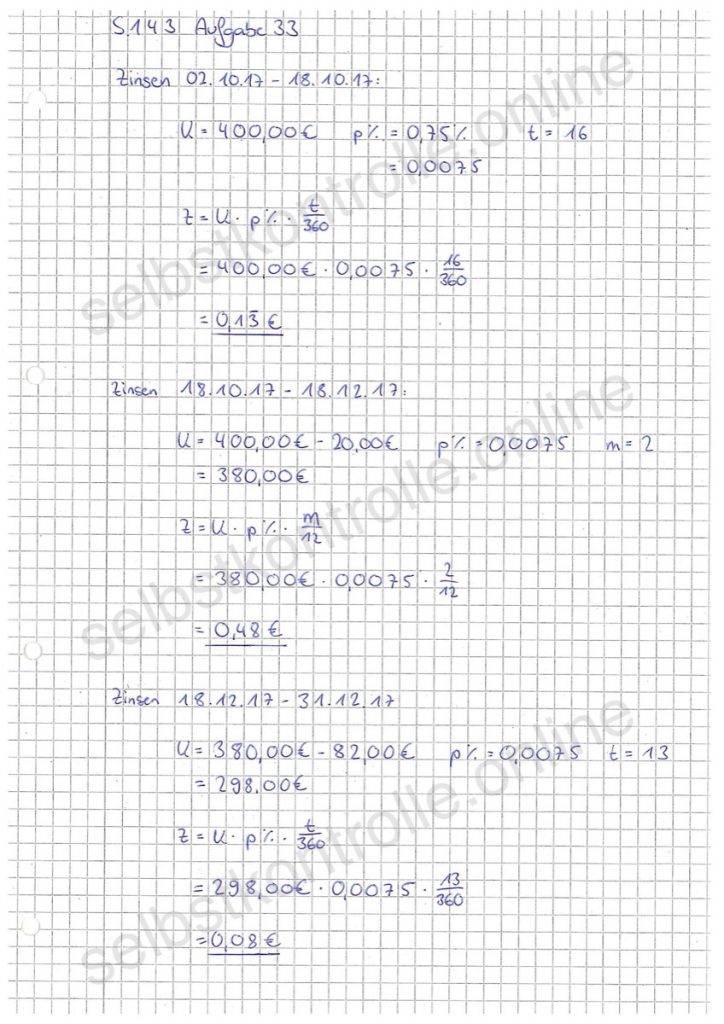 S.143 Aufgabe 33
Zinsen 02.10.17 - 18.10.17:
K = 400,00€ p% = 0,75% t = 16
= 0,0075
Z = K · p% · t/360
= 400,00€ · 0,0075 · 16/360
= 0,13̅ €
Zinsen 18.10.17 - 18.12.17:
K = 400,00€ - 20,00€ p% = 0,0075 m = 2
= 380,00€
Z = K · p% · m/12
= 380,00€ · 0,0075 · 2/12
= 0,48 €
Zinsen 18.12.17 - 31.12.17
K = 380,00€ - 82,00€ p% = 0,0075 t = 13
= 298,00€
Z = K · p% · t/360
= 298,00€ · 0,0075 · 13/360
= 0,08 €
selbstkontrolle.online
selbstkontrolle.online
selbstkontrolle.online